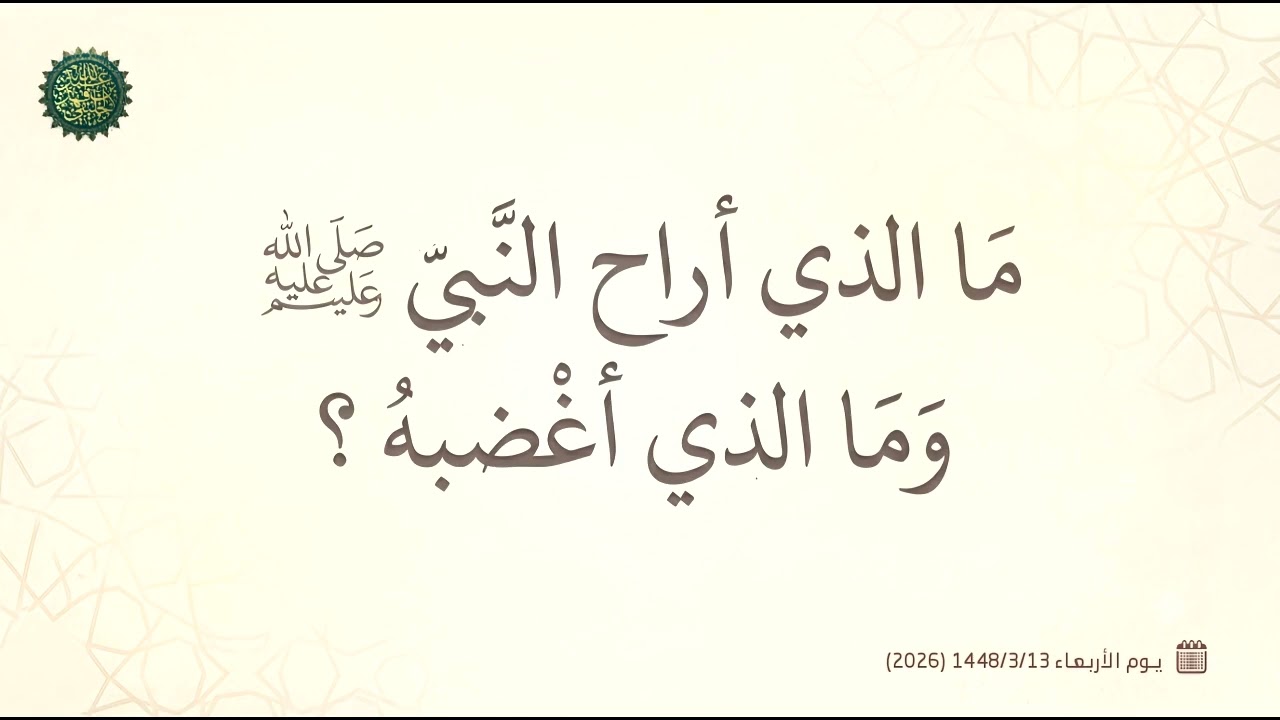 مَا الذي أراح النَّبيّ ﷺ
وَمَا الذي أغْضبهُ ؟
يوم الأربعاء 1448/3/13 (2026)